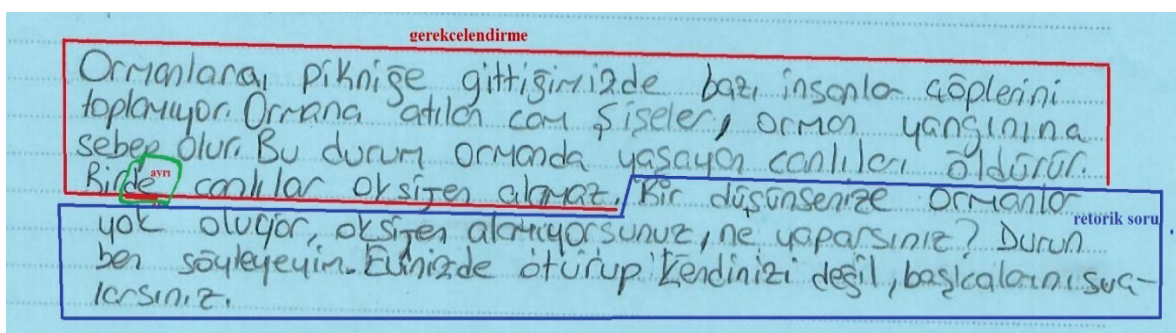 gerekcelendirme
Ormanlara, pikniğe gittiğimizde bazı insanlar çöplerini
toplamıyor. Ormana atılan cam şişeler, orman yangınına
sebep olur. Bu durum ormanda yaşayan canlıları öldürür.
ayrı
Birde canlılar oksijen alamaz. Bir düşünsenize ormanlar
retorik soru
yok oluyor, oksijen alamıyorsunuz, ne yaparsınız? Durun
ben söyleyeyim. Evinizde oturup kendinizi değil, başkalarını suç-
larsınız.